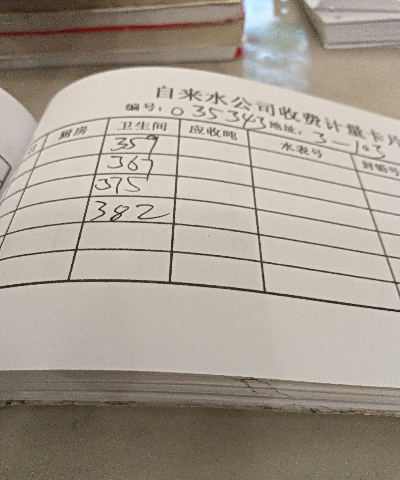 自来水公司收费计量卡片
编号：035343 地址：3-103
厨房 卫生间 应收吨 水表号
359
367
375
382